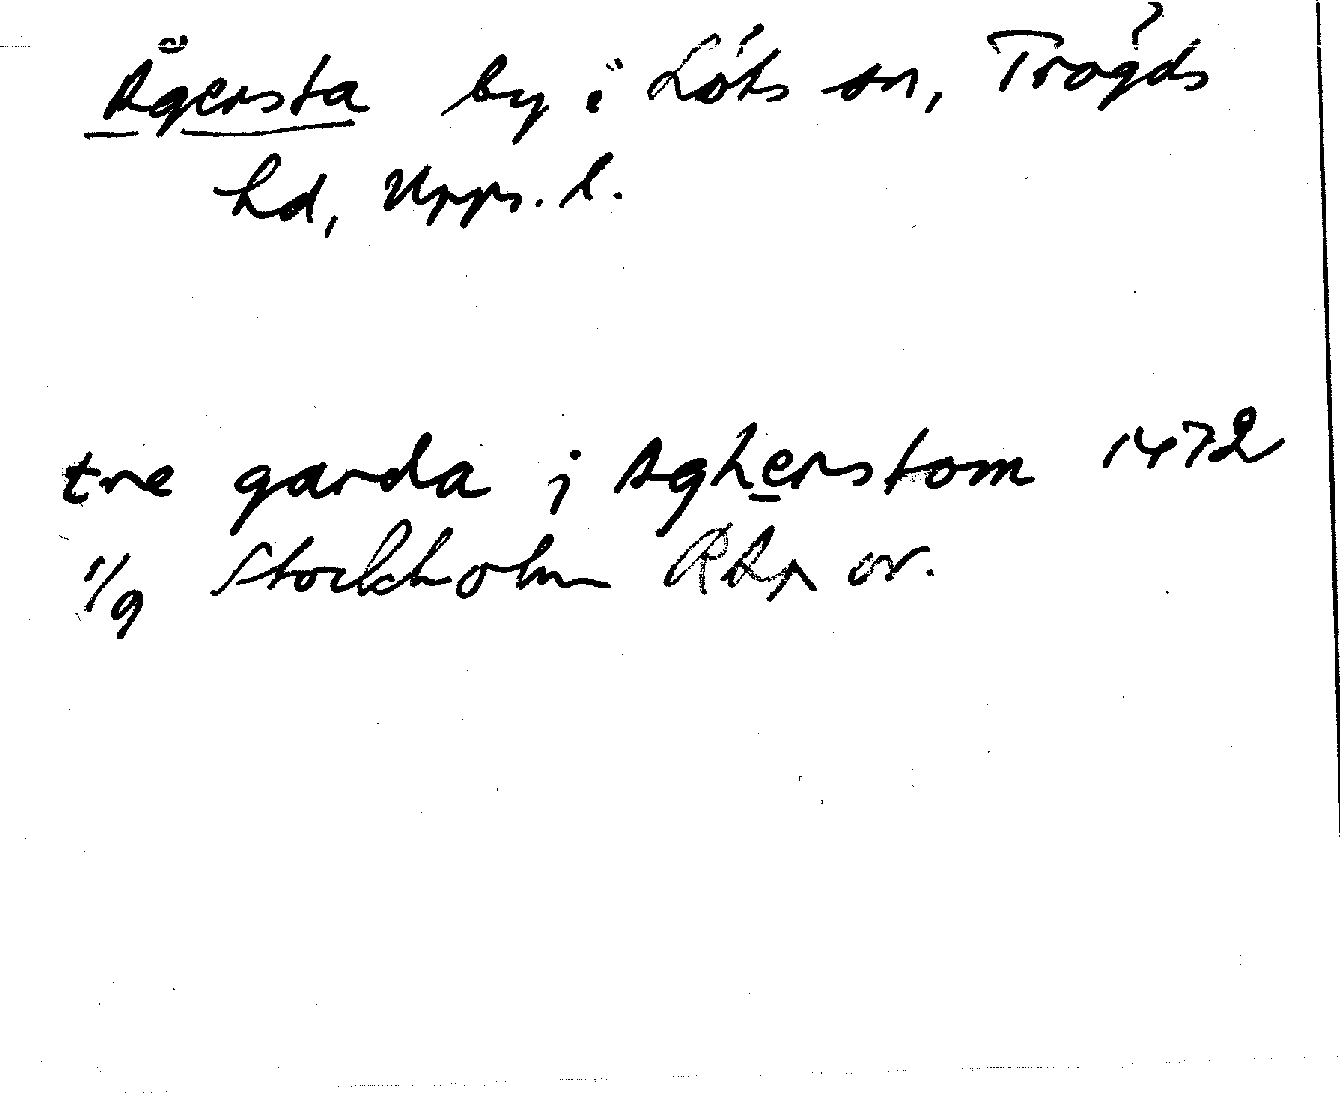 Ågersta by i Löts sn, Trögds
hd, Upps. l.
tre garda i Agherstom 1472
1/9 Stockholm RAp or.